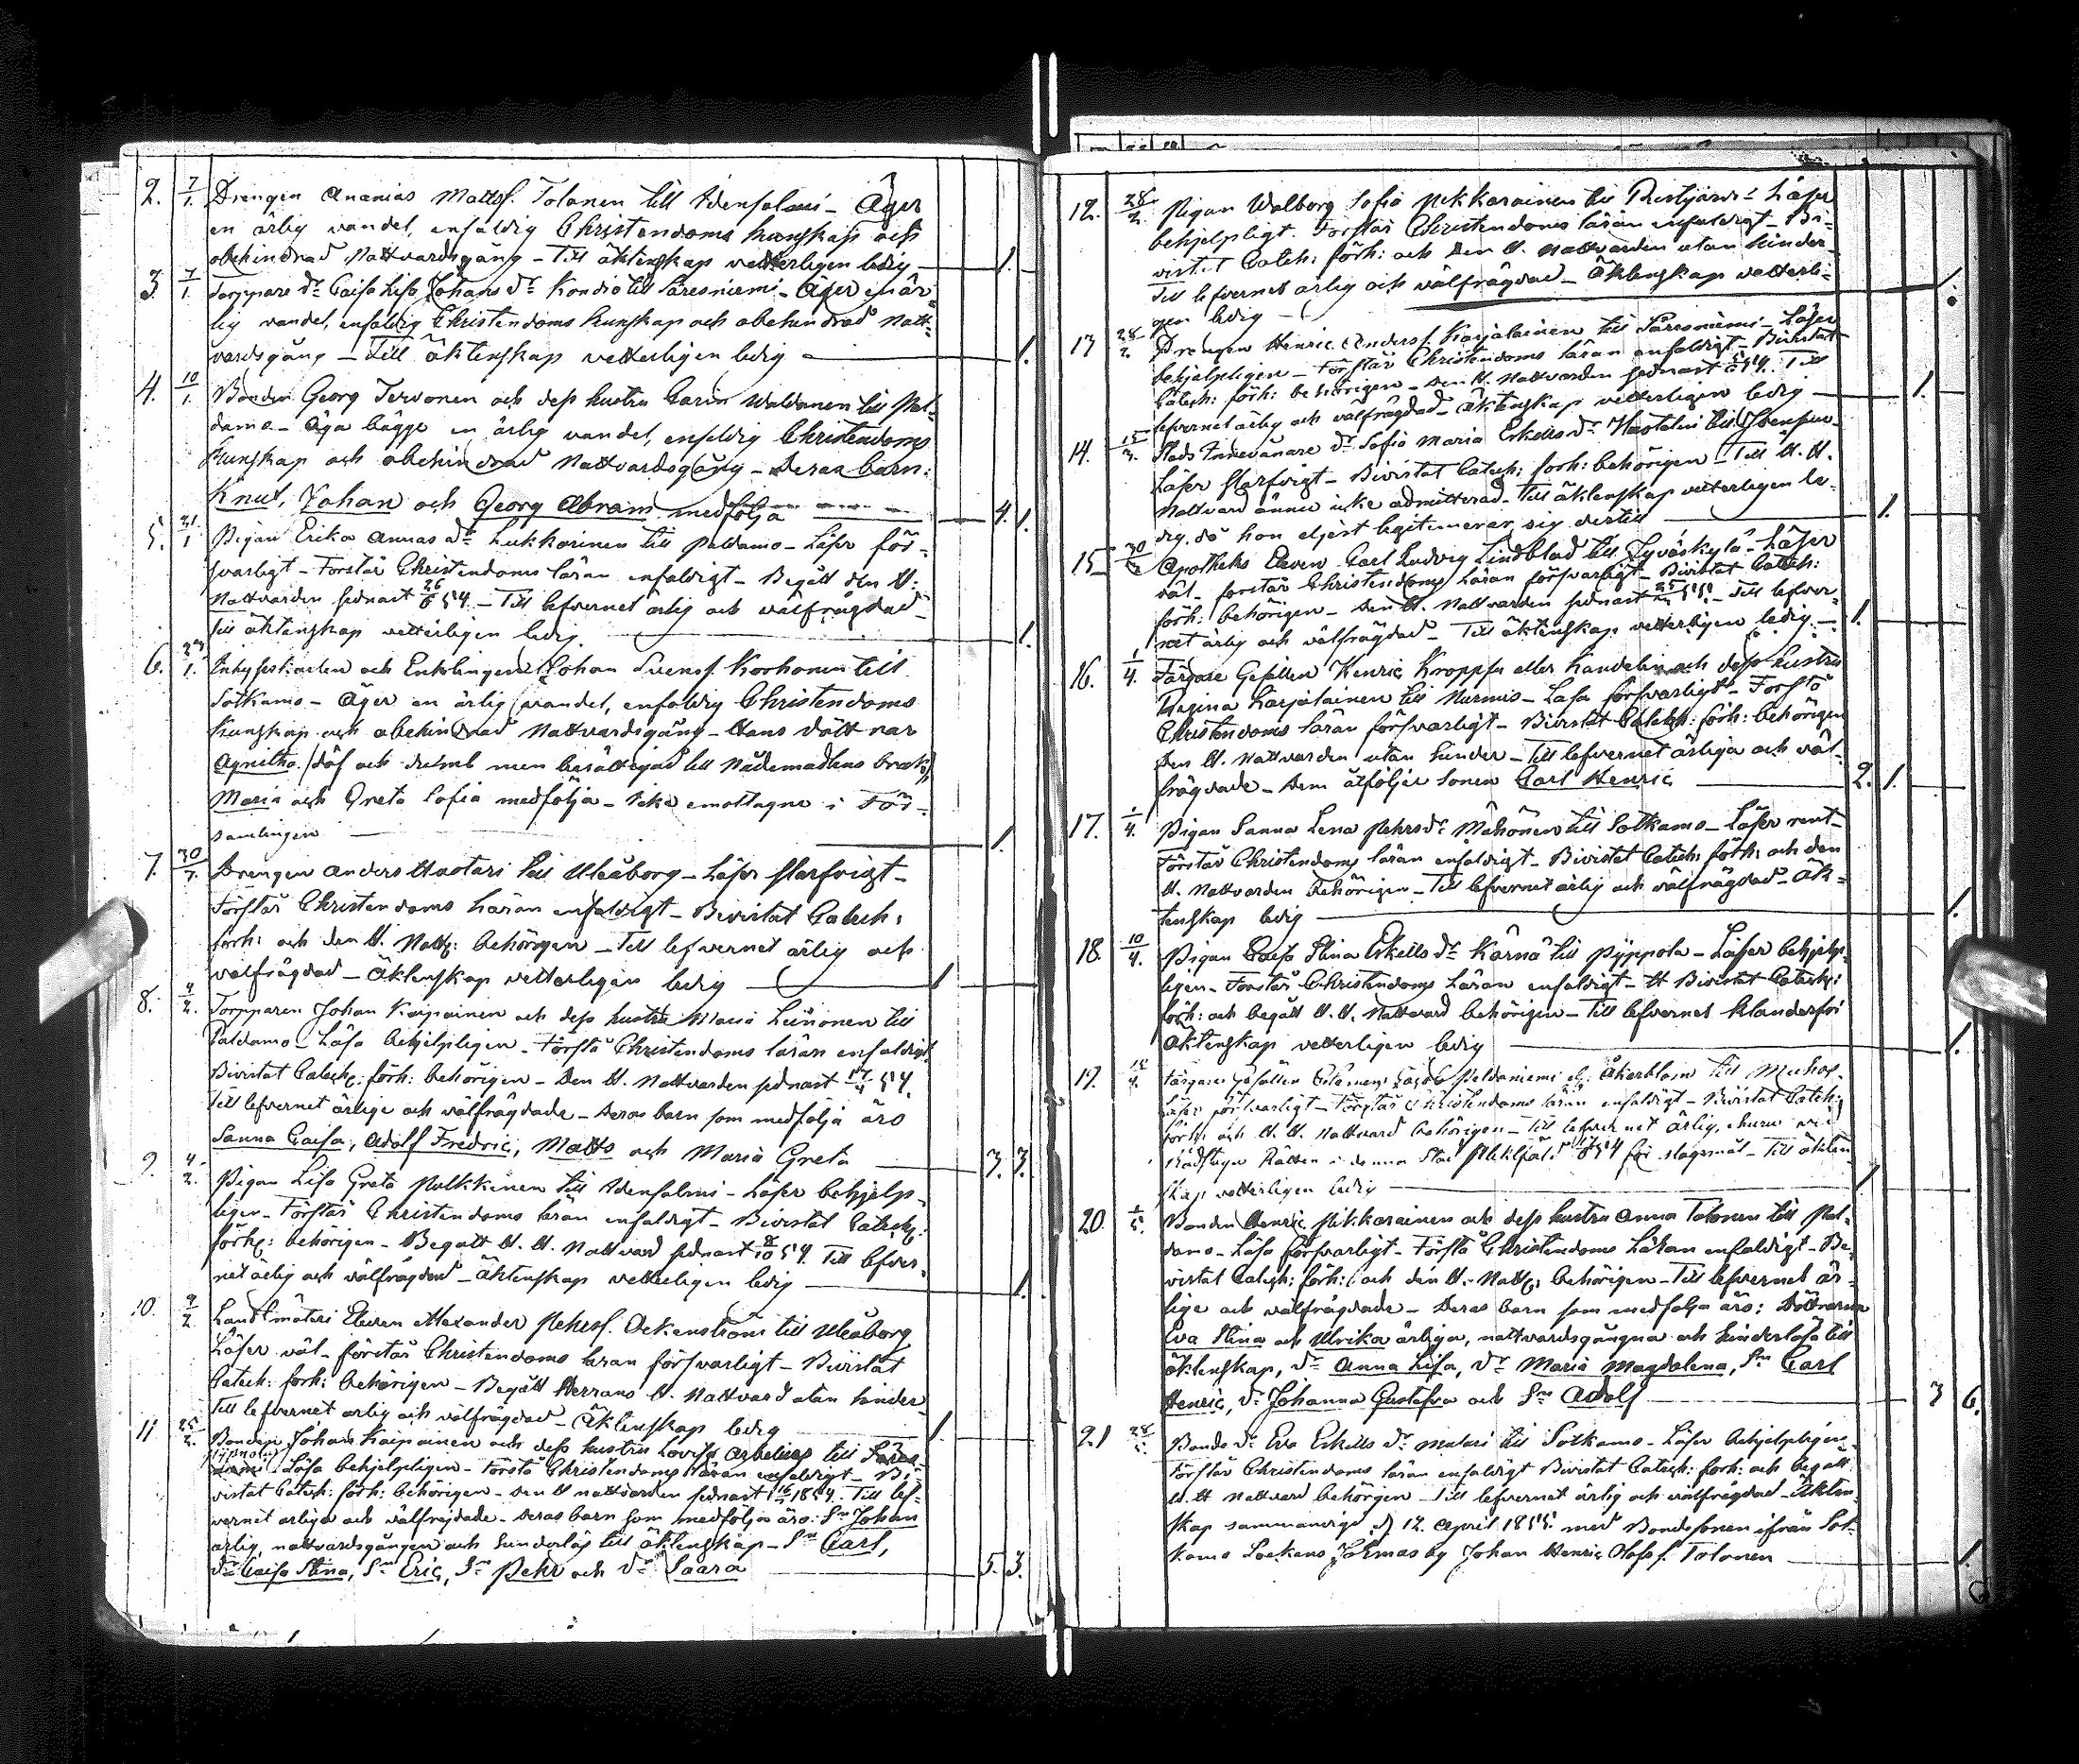 2. 7/1. Drengen Ananias Mattsf. Tolonen till Idensalmi - Äger
en ärlig vandel, enfaldig Christendoms kunskap och
obehindrad Nattvardsgång - Till äktenskap vetterligen ledig - 1.
3. 7/1. Torppare dr Caisa Lisa Johans dr Kondio till Säresniemi - Äger en är-
lig vandel, enfaldig Christendoms kunskap och obehindrad Natt-
vardsgång - Till äktenskap vetterligen ledig - 1.
4. 10/1. Bonden Georg Tervonen och dess hustru Carin Waldanen till Pal-
damo - Äga bägge en ärlig vandel, enfaldig Christendoms
kunskap och obehindrad Nattvardsgång - Deras barn:
Knut, Johan och Georg Abram medfölja - 4. 1.
5. 21/1 Pigan Erika Annas dr Lukkarinen till Paldamo - Läser för-
svarligt - Förstår Christendoms läran enfaldigt - Begått den H.
Nattvarden sednast 26/8 54. - Till lefvernet ärlig och välfrägdad
Till äktenskap vetterligen ledig - 1.
6. 23/1. Inhyseskarlen och Enklingen Johan Svensf. Korhonen till
Sotkamo - Äger en ärlig vandel, enfaldig Christendoms
kunskap och obehindrad Nattvardsgång - Hans döttrar
Agnitha /döf och dumb men berättigad till Nådemedlens bruk/,
Maria och Greta Sofia medfölja - Icke emottagne i För-
samlingen - 1.
7. 30/1. Drengen Anders Huotari till Uleåborg - Läser slarfvigt -
Förstår Christendoms läran enfaldigt - Bivistat Catech:
förh: och den H. Nattv: behörigen - Till lefvernet ärlig och
välfrägdad - Äktenskap vetterligen ledig - 1
8. 4/2. Torpparen Johan Karjainen och dess hustru Maria Leinonen till
Paldamo - Läsa behjelpligen - Förstå Christendoms läran enfaldigt
Bivistat Catech: förh: behörigen - Den H. Nattvarden sednast 17/4 54.
Till lefvernet ärlige och välfrägdade - Deras barn som medfölja äro
Sanna Caisa, Adolf Fredric, Matts och Maria Greta - 3. 3.
9. 4/2. Pigan Lisa Greta Pulkkinen till Idensalmi - Läser behjelp-
ligen - Förstår Christendoms läran enfaldigt - Bivistat Catech:
förh: behörigen - Begått H. H. Nattvard sednast 8/10 54. Till lefver-
net ärlig och välfrägdad - Äktenskap vetterligen ledig - 1.
10. 9/2 Landtmäteri Eleven Alexander Pehrsf. Ockenström till Uleåborg
Läser väl - förstår Christendoms läran försvarligt - Bivistat
Catech: förh: behörigen - Begått Herrans H. Nattvard utan hinder
Till lefvernet ärlig och välfrägdad - Äktenskap ledig - 1
11 25/2. Bonden Johan Kaipainen och dess hustru Lovisa till
Läsa behjelpligen - Förstå Christendoms läran enfaldigt - Bi-
vistat Catech: förh: behörigen - Den H nattvarden sednast 1854. Till lef-
vernet ärliga och välfrejdade - Deras barn som medfölja äro: Sn Johan
ärlig, nattvardsgången och hinderlös till äktenskap - Sn Carl,
dr Caisa Stina, Sn Eric, Sn Pehr och dr Saara - 5. 3.
12. 28/2. Pigan Walborg Sofia Pikkarainen till Ristijärvi - Läser
behjelpligt. Förstår Christendoms läran enfaldigt - Bi-
vistat Catech: förh: och den H. Nattvarden utan hinder
Till lefvernet ärlig och välfrägdad - Äktenskap vetterli-
gen ledig - 1.
13 28/2. Drengen Henric Andersf. Karjalainen till Säresniemi - Läser
behjelpligen - Förstår Christendoms läran enfaldigt - Bivistat
Catech: förh: behörigen - Den H. Nattvarden sednast 54. Till
lefvernet ärlig och välfrägdad - Äktenskap vetterligen ledig - 1.
14. 15/3. Stads Innevånare dr Sofia Maria Eskells dr Huotari till
Läser slarfvigt - Bivistat Catech: förh: behörigen - Till H. H.
Nattvard ännu icke admitterad - Till äktenskap vetterligen le-
dig, då hon eljest legitimerar sig dertill - 1.
15. 30/3 Apotheks Eleven Carl Ludvig Lindblad till Jyväskylä - Läser
väl - förstår Christendoms Läran försvarligt - Bivistat Catech:
förh: behörigen - Den H. Nattvarden sednast 25/3 55. - Till lefver-
net ärlig och välfrägdad - Till äktenskap vetterligen ledig. - 1.
16. 1/4. Färgare Gesällen Henric Kroppsu eller Kandelin och dess hustru
Regina Karjalainen till Nurmis - Läsa försvarligt - Förstå
Christendoms läran försvarligt - Bivistat Catech: förh: behörigen
Den H. Nattvarden utan hinder - Till lefvernet ärliga och väl-
frägdade - Dem åtföljer sonen Carl Henric - 2. 1.
17. 1/4. Pigan Sanna Lena Pehrs dr Mähönen till Sotkamo - Läser rent -
Förstår Christendoms läran enfaldigt - Bivistat Catech: förh: och den
H. Nattvarden behörigen - Till lefvernet ärlig och välfrägdad - Äk-
tenskap ledig - 1.
18. 10/4. Pigan Caisa Stina Eskells dr Kärnä till Pyppola - Läser behjelp-
ligen - Förstår Christendoms Läran enfaldigt - Bivistat Catech:
förh: och begått H. H. Nattvard behörigen - Till lefvernet klanderfri
Äktenskap vetterligen ledig - 1.
19. Färgare Gesällen Jacob Paldaniemi Åkerblom till Muhos -
Läser försvarligt - Förstår Christendoms läran enfaldigt - Bivistat Catech:
förh: och H. H. Nattvard behörigen - Till lefvernet ärlig, ehuru vid
Rådstugu Rätten i denna Stad 54 för slagsmål - Till äkten-
skap vetterligen ledig - 1
20. 1/5. Bonden Henric Pikkarainen och dess hustru Anna Tolonen till Pal-
damo - Läsa försvarligt - Förstå Christendoms Läran enfaldigt - Be-
vistat Catech: förh: och den H. Nattv: behörigen - Till lefvernet är-
lige och välfrägdade - Deras barn som medfölja äro: Döttrarna
Eva Stina och Ulrika ärliga, nattvardsgångna och hinderlösa till
äktenskap, dr Anna Lisa, dr Maria Magdalena, Sn Carl
Henric, dr Johanna Gustafva och Sn Adolf - 3 6.
21 28/5. Bonde dr Eva Eskells dr till Sotkamo - Läser behjelpligen -
Förstår Christendoms läran enfaldigt Bivistat Catech: förh: och begått
H. H Nattvard behörigen - Till lefvernet ärlig och välfrägdad - Äkten-
skap sammanvigd d 12. April 1855. med Bondesonen ifrån Sot-
kamo Sockens by Johan Henric Olofsf. Tolonen - 1.